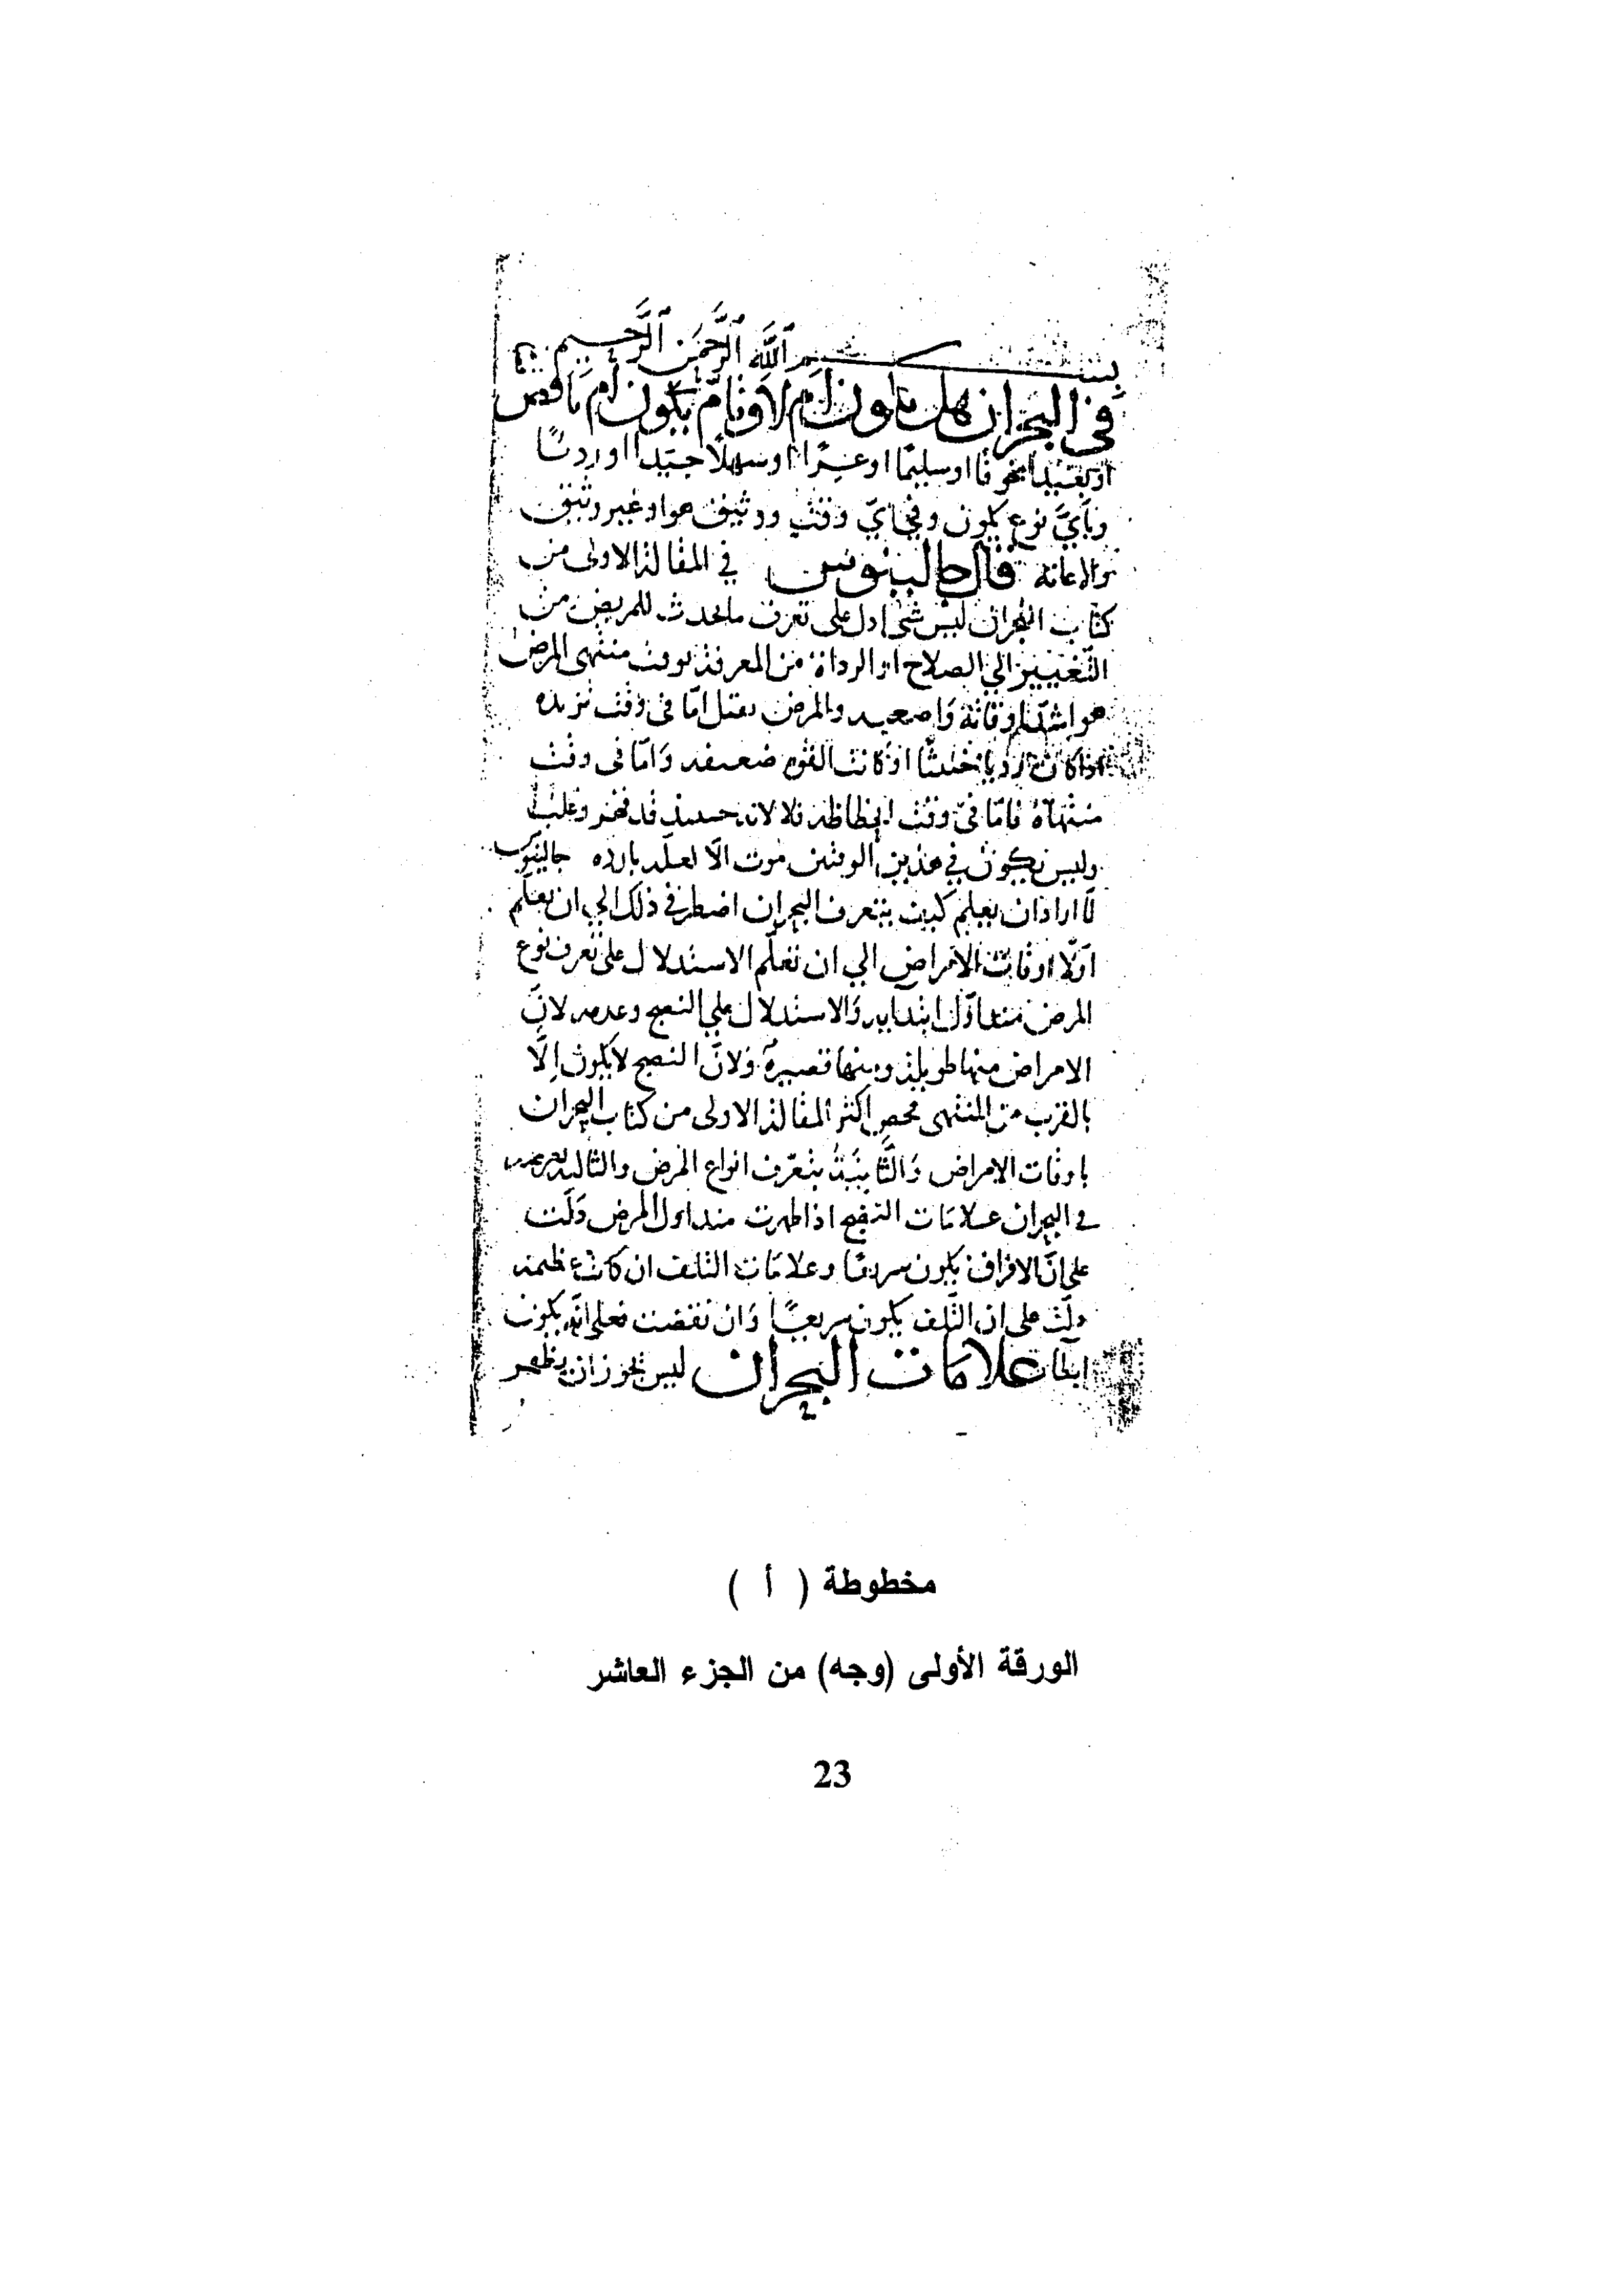 بسم الله الرحمن الرحيم
في البحران هل يكون أم لا وتام يكون أم ناقص
مخوفا او سليما او عسرا او سهلا جيدا او رديا
وبأي نوع يكون وفي أي وقت ووثيق هو او غير وثيق
قال جالينوس في المقالة الاولى من
كتاب البحران ليس شي ادل على تعرف ما يحدث للمريض من
التغيير الي الصلاح او الرداة من المعرفة بوقت منتهى المرض
هو اشد اوقاته واصعبه والمرض يقتل اما في وقت تزيده
اذا كان رديا خبيثا او كانت القوه ضعيفه واما في وقت
منتهاه فاما في وقت انحطاطه فلا لانه حينيذ قد قهر وغلب
وليس يكون في هذين الوقتين موت الا لعله بارده جالينوس
لما اراد ان يعلم كيف يتعرف البحران اضطر في ذلك الي ان يعلم
اولا اوقات الامراض الي ان تعلم الاستدلال على تعرف نوع
المرض منذ اول ابتدايه والاستدلال علي النضج وعدمه لان
الامراض منها طويلة ومنها قصيرة ولان النضج لا يكون إلا
بالقرب من المنتهى اكثر المقالة الاولى من كتاب البحران
باوقات الامراض والثانية بتعرف انواع المرض والثالثه
في البحران علامات النضج اذا ظهرت منذ اول المرض دلت
على ان الافراق يكون سريعا وعلامات التلف ان كانت عظيمة
دلت على ان التلف يكون سريعا وان نقصت فعلى انه يكون
علامات البحران ليس يجوز ان يظهر
مخطوطة ( أ )
الورقة الأولى (وجه) من الجزء العاشر
23